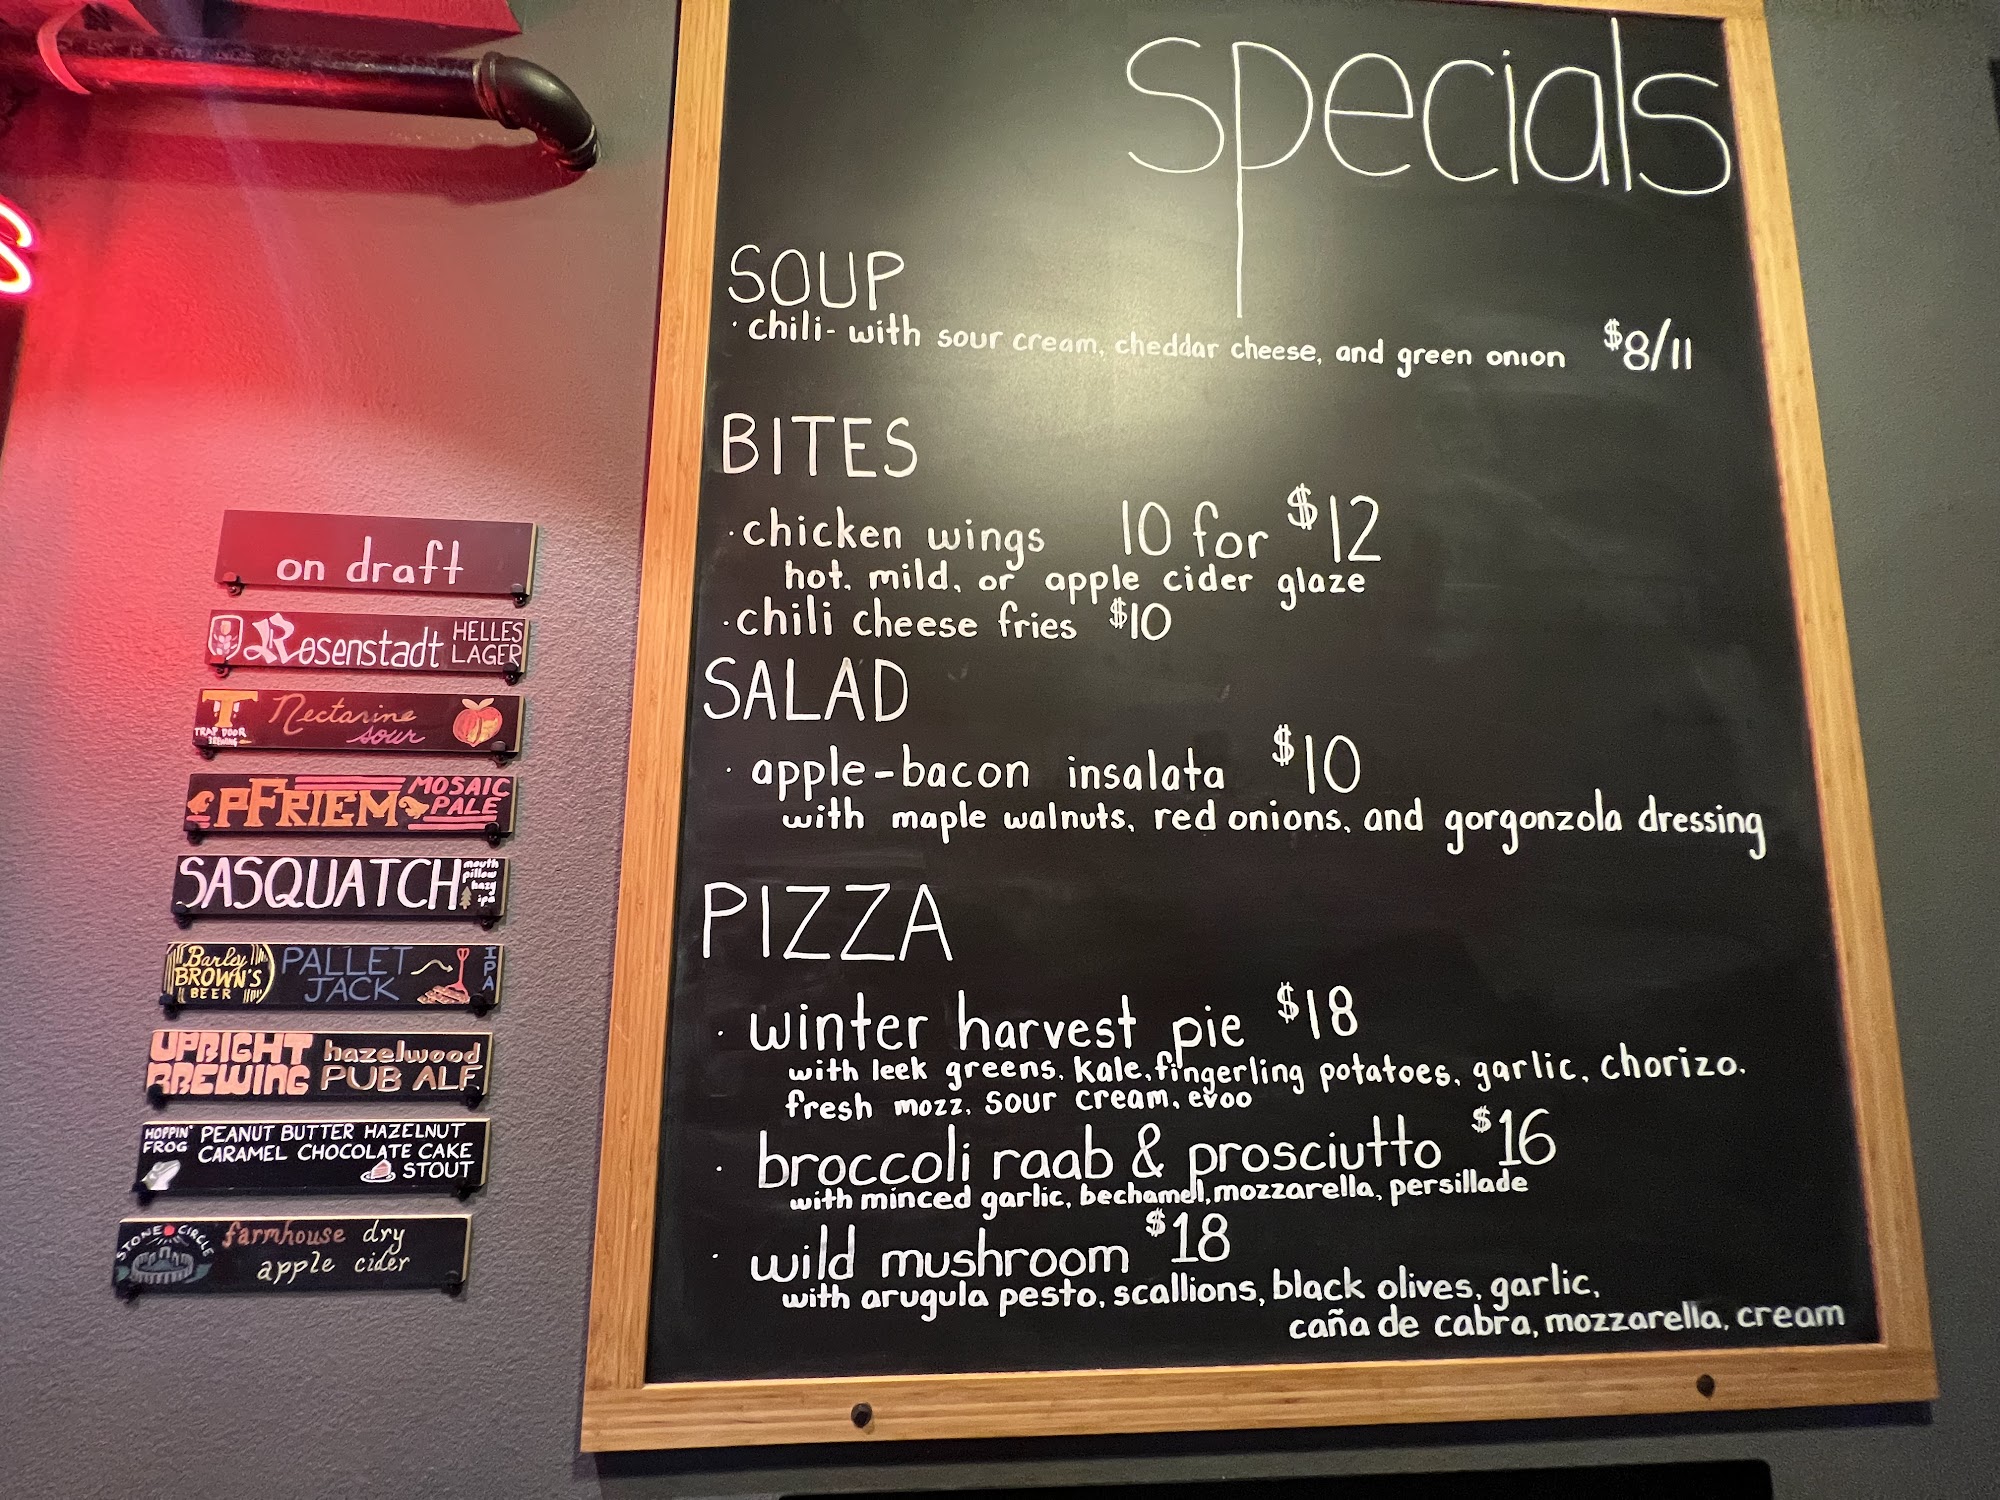 on draft
Rosenstadt HELLES LAGER
TRAP DOOR BREWING Nectarine sour
pFRIEM MOSAIC PALE
SASQUATCH mouth pillow hazy ipa
Barley BROWN'S BEER PALLET JACK IPA
UPRIGHT BREWING hazelwood PUB ALE
HOPPIN' FROG PEANUT BUTTER HAZELNUT
CARAMEL CHOCOLATE CAKE
STOUT
STONE CIRCLE farmhouse dry
apple cider
specials
SOUP
· chili- with sour cream, cheddar cheese, and green onion $8/11
BITES
· chicken wings 10 for $12
hot, mild, or apple cider glaze
· chili cheese fries $10
SALAD
· apple-bacon insalata $10
with maple walnuts, red onions, and gorgonzola dressing
PIZZA
· winter harvest pie $18
with leek greens, kale, fingerling potatoes, garlic, chorizo,
fresh mozz, sour cream, evoo
· broccoli raab & prosciutto $16
with minced garlic, bechamel, mozzarella, persillade
· wild mushroom $18
with arugula pesto, scallions, black olives, garlic,
caña de cabra, mozzarella, cream